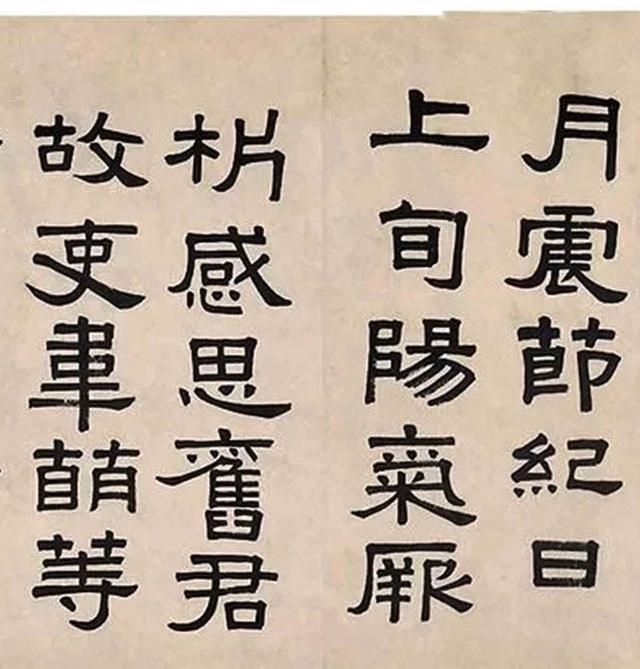 月震節紀日
上旬陽氣厥
析感思舊君
故吏韋萌等